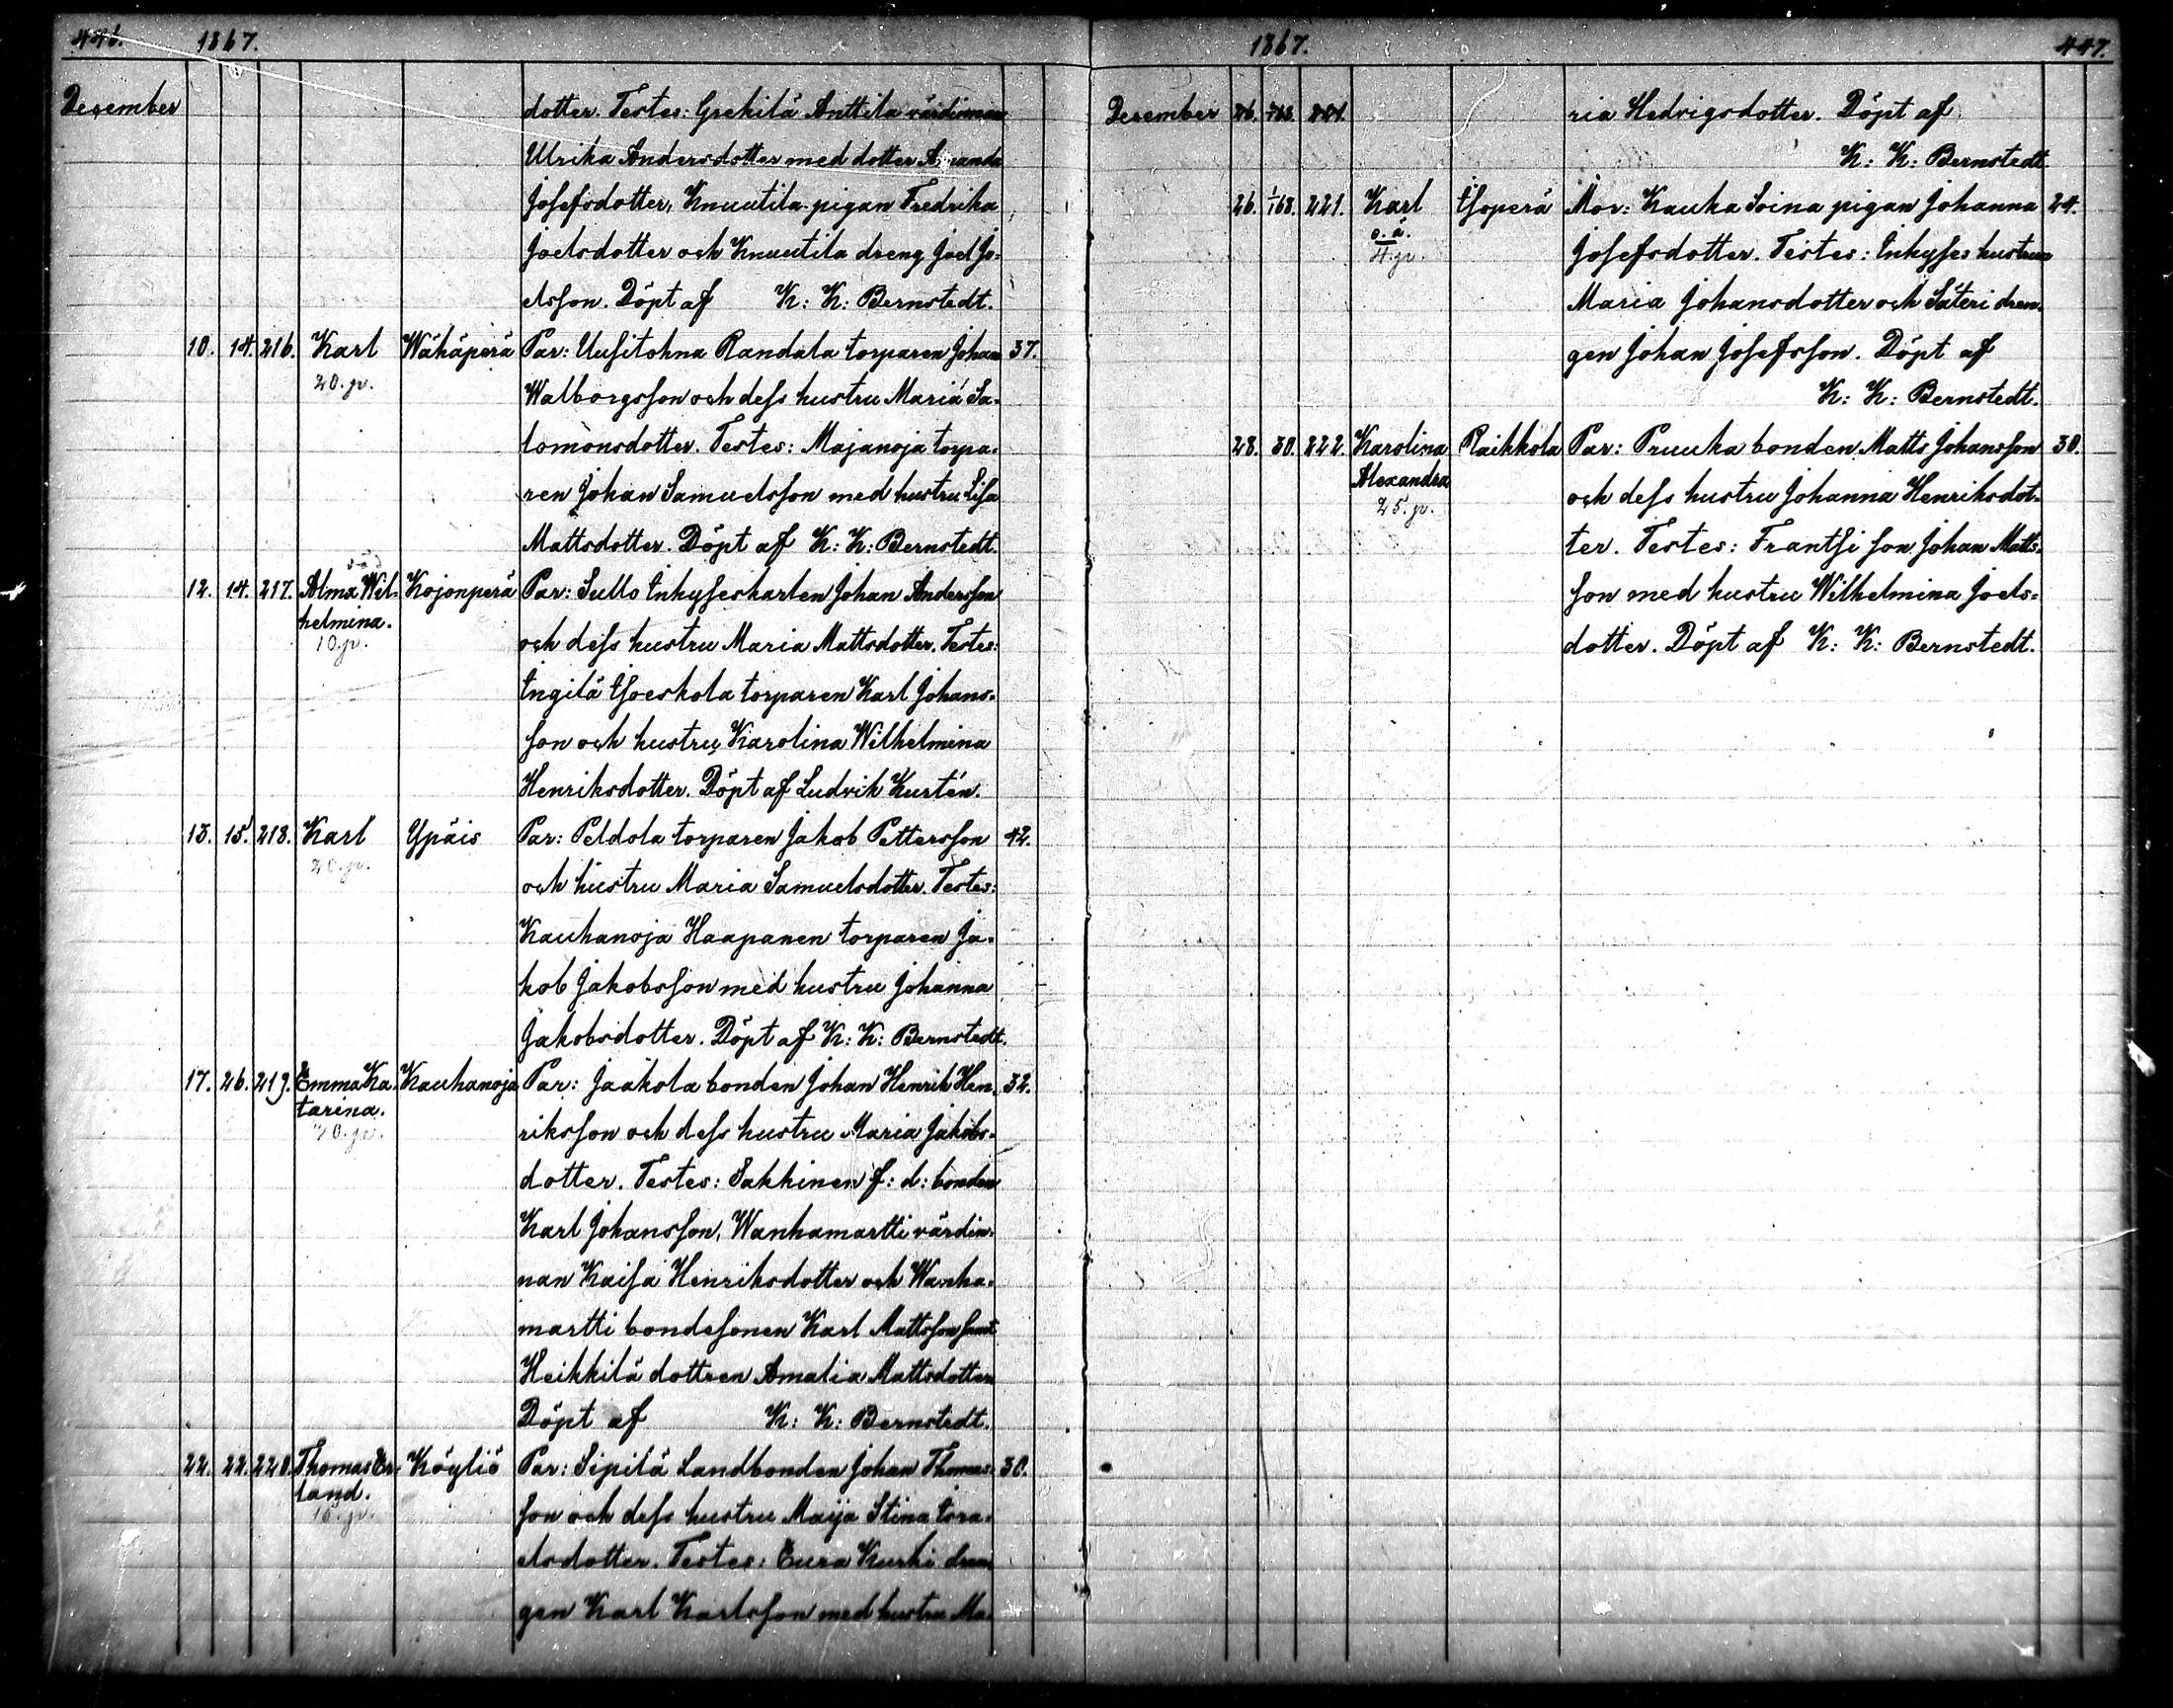 446. 1867.
Desember dotter. Testes: Grekilä Anttila värdinnan
Ulrika Andersdotter med dotter Amanda
Josefsdotter, Knuutila pigan Fredrika
Joelsdotter och Knuutila dreng Joel Jo-
elsson. Döpt af K: K: Bernstedt.
10. 14. 216. Karl Wähäperä Par: Uusitohna Randala torparen Johan 37.
20. p. Walborgsson och dess hustru Maria Sa-
lomonsdotter. Testes: Majanoja torpa-
ren Johan Samuelsson med hustru Lisa
Mattsdotter. Döpt af K: K: Bernstedt.
12. 14. 217. Alma Wil- Kojonperä Par: Sullo Inhyseskarlen Johan Andersson
helmina. och dess hustru Maria Mattsdotter. Testes:
10. p. Ingilä Isoeskola torparen Karl Johans-
son och hustru Karolina Wilhelmina
Henriksdotter. Döpt af Ludvik Kurtén.
13. 15. 218. Karl Ypäis Par: Peldola torparen Jakob Pettersson 42.
20. p. och hustru Maria Samuelsdotter. Testes:
Kauhanoja Haapanen torparen Ja-
kob Jakobsson med hustru Johanna
Jakobsdotter. Döpt af K: K: Bernstedt.
17. 26. 219. Emma Ka- Kauhanoja Par: Jaakola bonden Johan Henrik Hen- 32.
tarina. riksson och dess hustru Maria Jakobs-
dotter. Testes: Sakkinen f: d: bonden
Karl Johansson, Wanhamartti värdin-
nan Kaisa Henriksdotter och Wanha-
martti bondesonen Karl Mattsson samt
Heikkilä dottren Amalia Mattsdotter
Döpt af K: K: Bernstedt.
22. 22. 220. Thomas Er- Köyliö Par: Sipilä Landbonden Johan Thomas- 30.
land. son och dess hustru Maija Stina Isra-
15. p. elsdotter. Testes: Eura Kurki dren-
gen Karl Karlsson med hustru Ma-
1867. 447.
Desember ria Hedvigsdotter. Döpt af
K: K: Bernstedt
26. 1/1 68. 221. Karl Isoperä Mor: Kauka Soina pigan Johanna 24.
o. ä. Josefsdotter. Testes: Inhyses hustrun
4. p. Maria Johansdotter och Säteri dren-
gen Johan Josefsson. Döpt af
K: K: Bernstedt.
28. 30. 222. Karolina Raikkola Par: Pruuka bonden Matts Johansson 30.
Alexandra och dess hustru Johanna Henriksdot-
25. p. ter. Testes: Frantsi son Johan Matts-
son med hustru Wilhelmina Joels-
dotter. Döpt af K: K: Bernstedt.